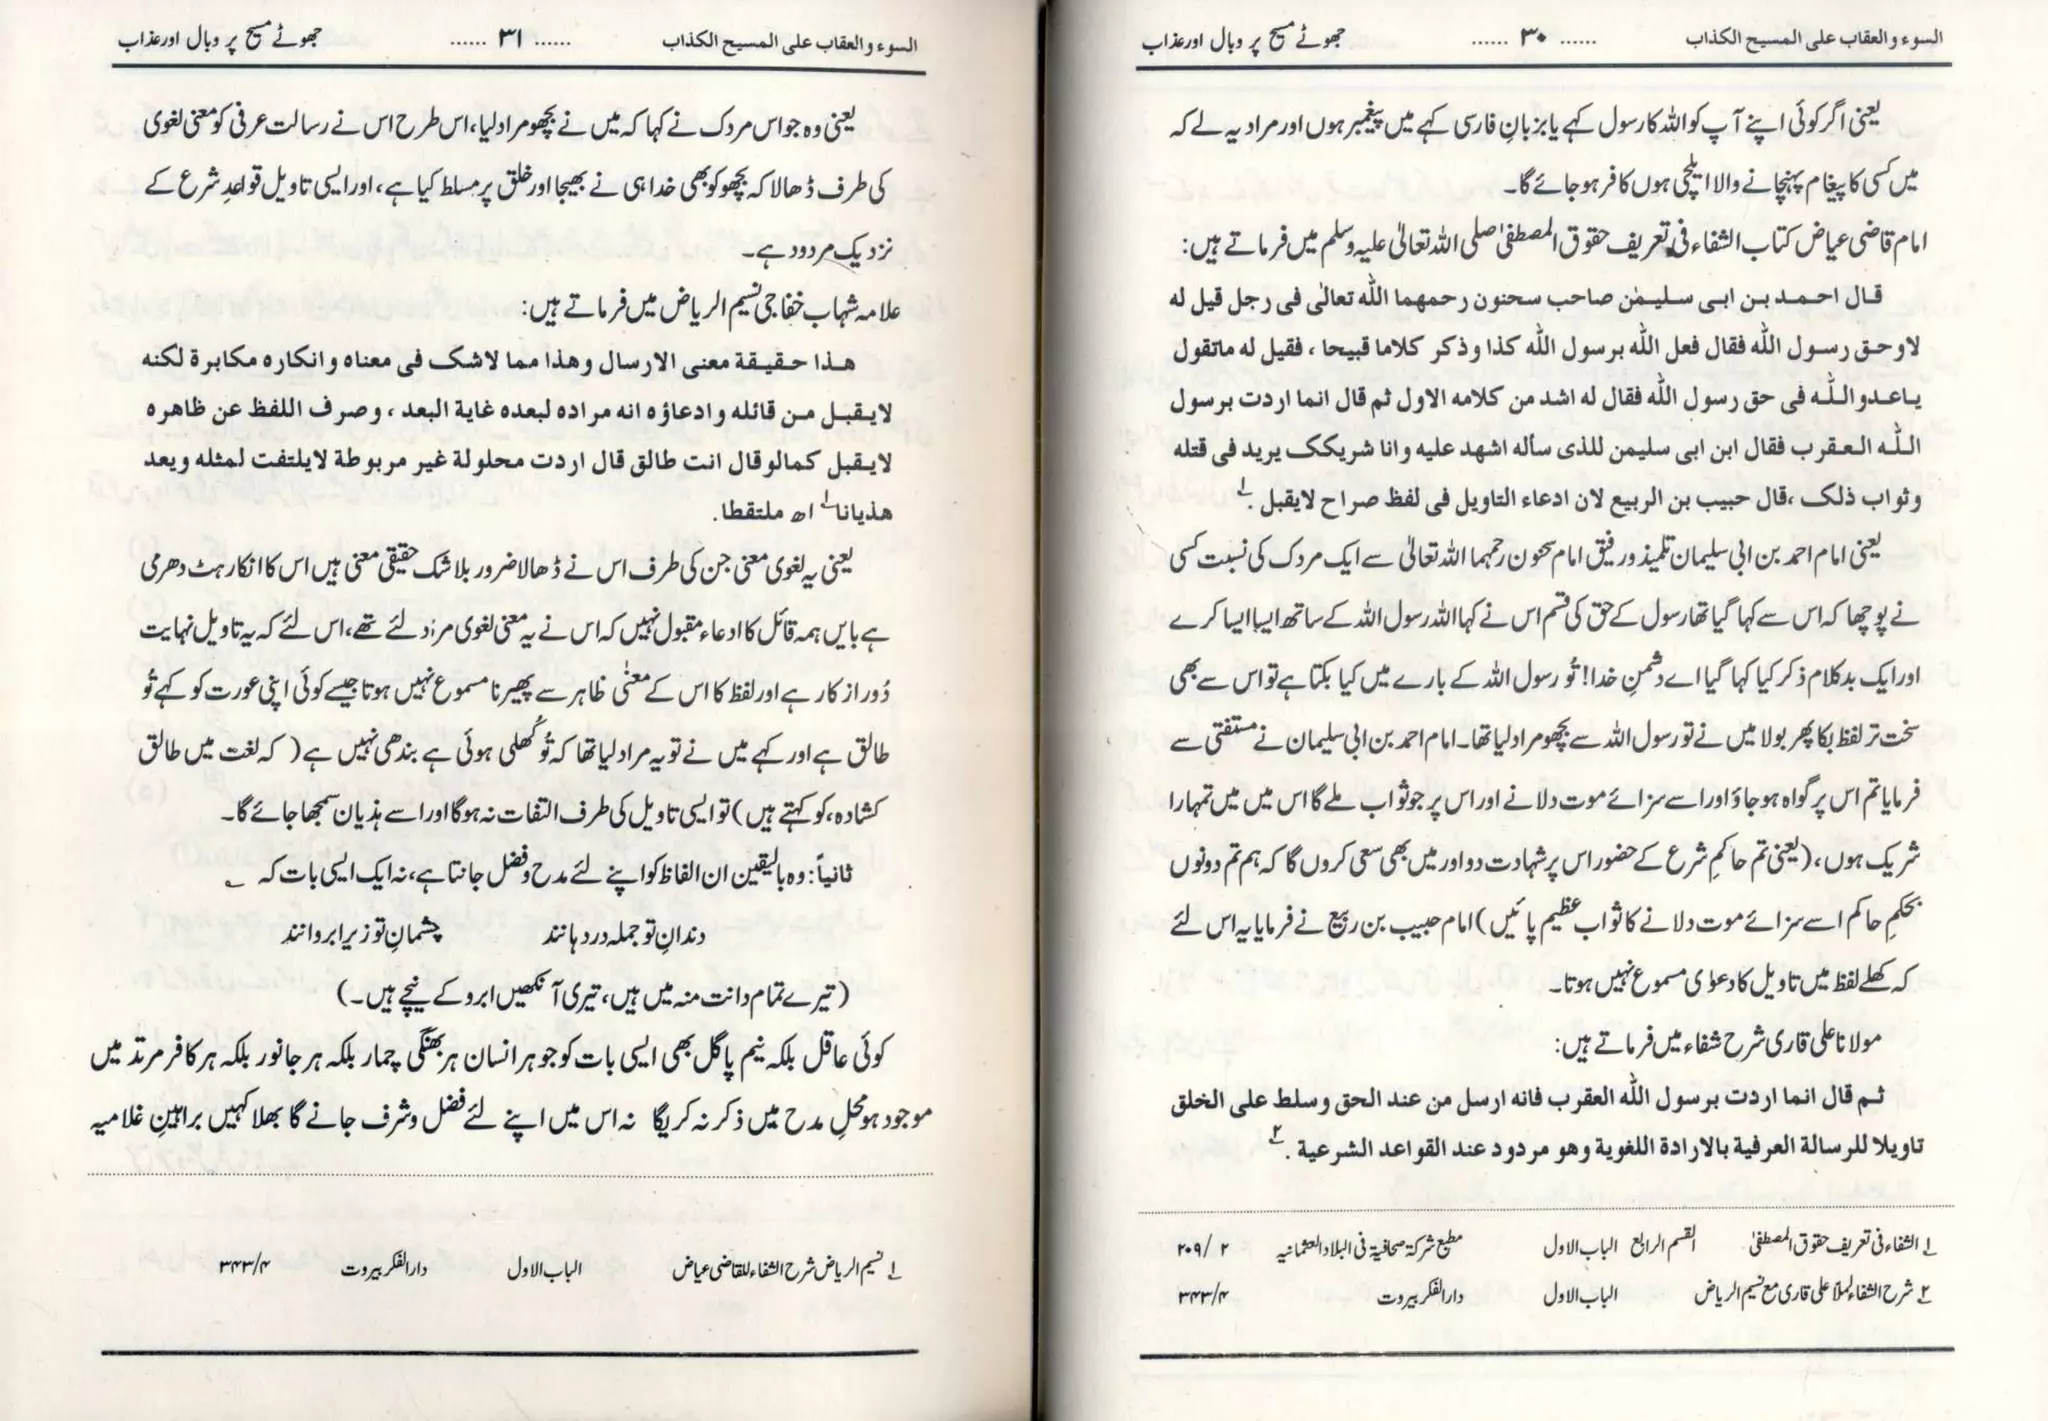 السوء والعقاب على المسيح الكذاب ...... ۳۰ ...... جھوٹے مسیح پر وبال اور عذاب
یعنی اگر کوئی اپنے آپ کو اللہ کا رسول کہے یا بزبانِ فارسی کہے میں پیغمبر ہوں اور مراد یہ لے کہ
میں کسی کا پیغام پہنچانے والا ایلچی ہوں کافر ہوجائے گا۔
امام قاضی عیاض کتاب الشفاء فی تعریف حقوق المصطفیٰ صلی اللہ تعالیٰ علیہ وسلم میں فرماتے ہیں:
قال احمد بن ابی سلیمٰن صاحب سحنون رحمهما اللّٰه تعالٰی فی رجل قیل له
لاوحق رسول اللّٰه فقال فعل اللّٰه برسول اللّٰه کذا وذکر کلاما قبیحا ، فقیل له ماتقول
یاعدواللّٰه فی حق رسول اللّٰه فقال له اشد من کلامه الاول ثم قال انما اردت برسول
اللّٰه العقرب فقال ابن ابی سلیمن للذی سأله اشهد علیه وانا شریکک یرید فی قتله
وثواب ذلک ،قال حبیب بن الربیع لان ادعاء التاویل فی لفظ صراح لایقبل ۔ ۱؎
یعنی امام احمد بن ابی سلیمان تلمیذ ورفیق امام سحنون رحمہما اللہ تعالیٰ سے ایک مردک کی نسبت کسی
نے پوچھا کہ اس سے کہا گیا تھا رسول کے حق کی قسم اس نے کہا اللہ رسول اللہ کے ساتھ ایسا ایسا کرے
اور ایک بدکلام ذکر کیا کہا گیا اے دشمنِ خدا! تُو رسول اللہ کے بارے میں کیا بکتا ہے تو اس سے بھی
سخت تر لفظ بکا پھر بولا میں نے تو رسول اللہ سے بچھو مراد لیا تھا۔ امام احمد بن ابی سلیمان نے مستفتی سے
فرمایا تم اس پر گواہ ہوجاؤ اور اسے سزائے موت دلانے اور اس پر جو ثواب ملے گا اس میں میں تمہارا
شریک ہوں، (یعنی تم حاکمِ شرع کے حضور اس پر شہادت دو اور میں بھی سعی کروں گا کہ ہم تم دونوں
بحکمِ حاکم اسے سزائے موت دلانے کا ثواب عظیم پائیں) امام حبیب بن ربیع نے فرمایا یہ اس لئے
کہ کھلے لفظ میں تاویل کا دعوٰی مسموع نہیں ہوتا۔
مولانا علی قاری شرح شفاء میں فرماتے ہیں:
ثم قال انما اردت برسول اللّٰه العقرب فانه ارسل من عند الحق وسلط علی الخلق
تاویلا للرسالة العرفیة بالارادة اللغویة وهو مردود عند القواعد الشرعیة ۔ ۲؎
۱؎ الشفاء فی تعریف حقوق المصطفیٰ القسم الرابع الباب الاول مطبع شرکۃ صحافیۃ فی البلاد العثمانیہ ۲/ ۲۰۹
۲؎ شرح الشفاء لملا علی قاری مع نسیم الریاض الباب الاول دارالفکر بیروت ۴/ ۳۴۳
السوء والعقاب على المسيح الكذاب ...... ۳۱ ...... جھوٹے مسیح پر وبال اور عذاب
یعنی وہ جو اس مردک نے کہا کہ میں نے بچھو مراد لیا، اس طرح اس نے رسالت عرفی کو معنی لغوی
کی طرف ڈھالا کہ بچھو کو بھی خدا ہی نے بھیجا اور خلق پر مسلط کیا ہے، اور ایسی تاویل قواعدِ شرع کے
نزدیک مردود ہے۔
علامہ شہاب خفاجی نسیم الریاض میں فرماتے ہیں:
هذا حقیقة معنی الارسال وهذا مما لاشک فی معناه وانکاره مکابرة لکنه
لایقبل من قائله وادعاؤه انه مراده لبعده غایة البعد ، وصرف اللفظ عن ظاهره
لایقبل کمالوقال انت طالق قال اردت محلولة غیر مربوطة لایلتفت لمثله ویعد
هذیانا۱؎ اھ ملتقطا۔
یعنی یہ لغوی معنی جن کی طرف اس نے ڈھالا ضرور بلا شک حقیقی معنی ہیں اس کا انکار ہٹ دھرمی
ہے بایں ہمہ قائل کا ادعاء مقبول نہیں کہ اس نے یہ معنی لغوی مراد لئے تھے، اس لئے کہ یہ تاویل نہایت
دُور از کار ہے اور لفظ کا اس کے معنٰی ظاہر سے پھیرنا مسموع نہیں ہوتا جیسے کوئی اپنی عورت کو کہے تُو
طالق ہے اور کہے میں نے تو یہ مراد لیا تھا کہ تُو کُھلی ہوئی ہے بندھی نہیں ہے ( کہ لغت میں طالق
کشادہ، کو کہتے ہیں) تو ایسی تاویل کی طرف التفات نہ ہوگا اور اسے ہذیان سمجھا جائے گا۔
ثانیاً: وہ بالیقین ان الفاظ کو اپنے لئے مدح وفضل جانتا ہے، نہ ایک ایسی بات کہ ؎
دندانِ تو جملہ در دہانند چشمانِ تو زیر ابروانند
(تیرے تمام دانت منہ میں ہیں، تیری آنکھیں ابرو کے نیچے ہیں۔)
کوئی عاقل بلکہ نیم پاگل بھی ایسی بات کو جو ہر انسان ہر بھنگی چمار بلکہ ہر جانور بلکہ ہر کافر مرتد میں
موجود ہو محلِ مدح میں ذکر نہ کریگا نہ اس میں اپنے لئے فضل وشرف جانے گا بھلا کہیں براہینِ غلامیہ
۱؎ نسیم الریاض شرح الشفاء للقاضی عیاض الباب الاول دارالفکر بیروت ۴/ ۳۴۳